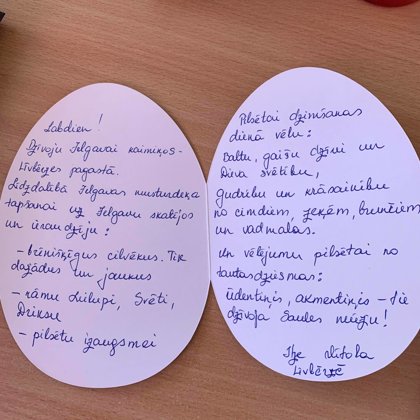 Labdien!
Dzīvoju Jelgavai kaimiņos -
Līvbērzes pagastā.
Līdzdalībā Jelgavas
tapšanai uz Jelgavu skatījos
un izraudzīju:
- brīnišķīgus cilvēkus. Tik
dažādus un jaukus
- rāmu Lielupi, Svēti,
Driksu
- pilsētu izaugsmei
Pilsētai dzimšanas
dienā vēlu:
Baltu, gaišu dzīvi un
Dieva svētību,
gudrību un krāsainību
no cimdiem, zeķēm, brunčiem
un vadmalas.
un vēlējumu pilsētai no
tautasdziesmas:
ūdentiņis, akmentiņis - tie
dzīvoja Saules mūžu!
Līvbērzē